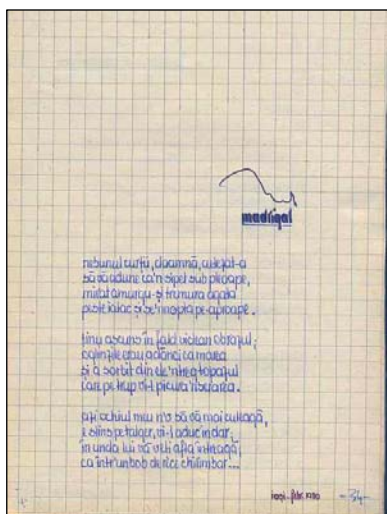 madrigal
nebunul curții, doamnă, cutezat-a
să vă adune ca'n sipet sub pleoape,
mirat amurgu-și tremura agata
peste iatac și se'nnopta pe-aproape.
țineți ascuns în fald viclean obrazul;
oglinzile erau adânci ca marea
și a sorbit din ele'ntreg topazul
care pe trup vi-l picura
azi ochiul meu n'o să vă mai culeagă,
e stins pe talger, vi-l aduc în dar.
în unda lui vă veți afla întreagă,
ca într'un bob de rece chihlimbar...
iași - febr. 1980
-34-